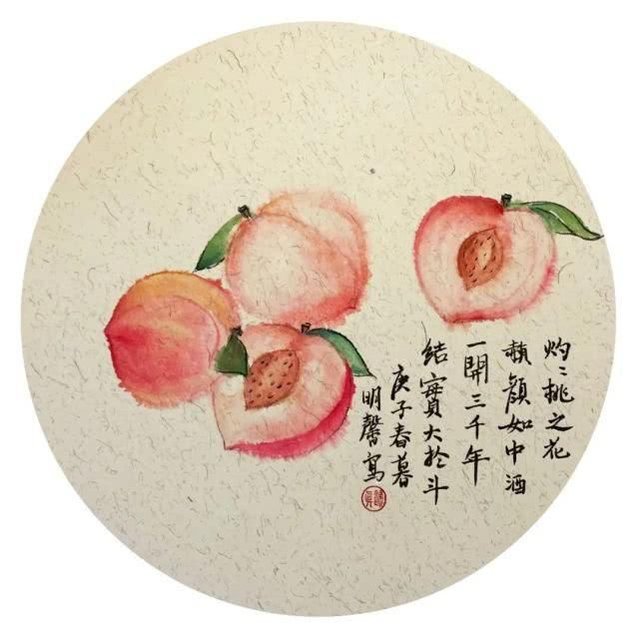 灼〻桃之花
赬顏如中酒
一開三千年
結實大於斗
庚子春暮
明馨寫